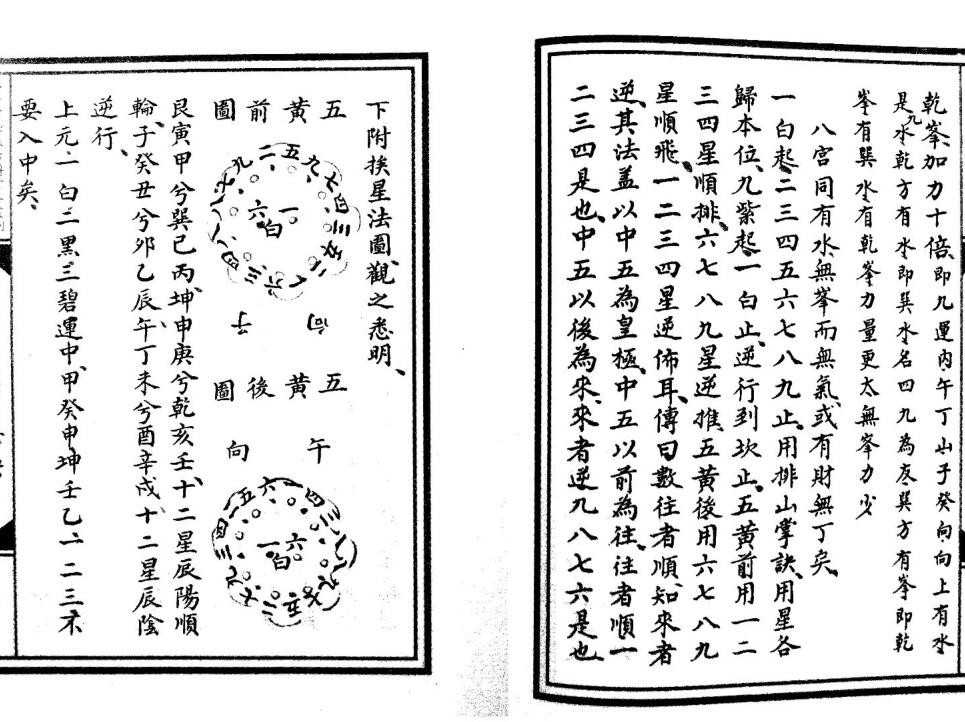 乾峯、加力十倍、即九運內午丁山子癸向、向上有水
是九水乾方有水即巽水名四九為友巽方有峯即乾
峯有巽水有乾峯力量更太無峯力少
八宮同有水無峯而無氣、或有財無丁矣、
一白起、二三四五六七八九止、用排山掌訣、用星各
歸本位、九紫起、一白止、逆行到坎止、五黃前用一二
三四星順排、六七八九星逆推、五黃後用六七八九
星順飛、一二三四星逆佈耳、傳曰數往者順、知來者
逆、其法蓋以中五為皇極、中五以前為往、往者順一
二三四是也、中五以後為來、來者逆九八七六是也、
下附挨星法圖、觀之悉明、
五黃前圖
一白
六
向子
五黃後圖
午向
六
一白
艮寅甲兮巽巳丙、坤申庚兮乾亥壬、十二星辰陽順
輪、子癸丑兮卯乙辰、午丁未兮酉辛戌、十二星辰陰
逆行、
上元、一白二黑、三碧運中、甲癸申坤壬乙、一二三不
要入中矣、